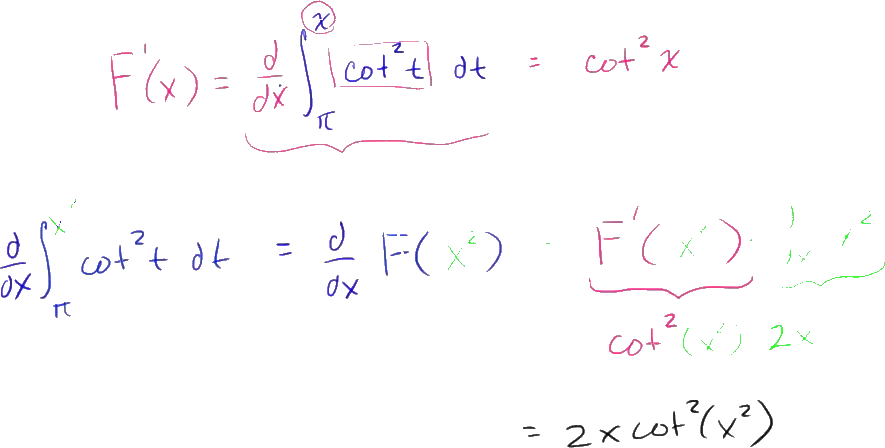 F'(x) = d/dx ∫_π^x cot² t dt = cot² x
d/dx ∫_π^x² cot² t dt = d/dx F(x²) F'(x²) · x²
cot² (x²) 2x
= 2x cot²(x²)